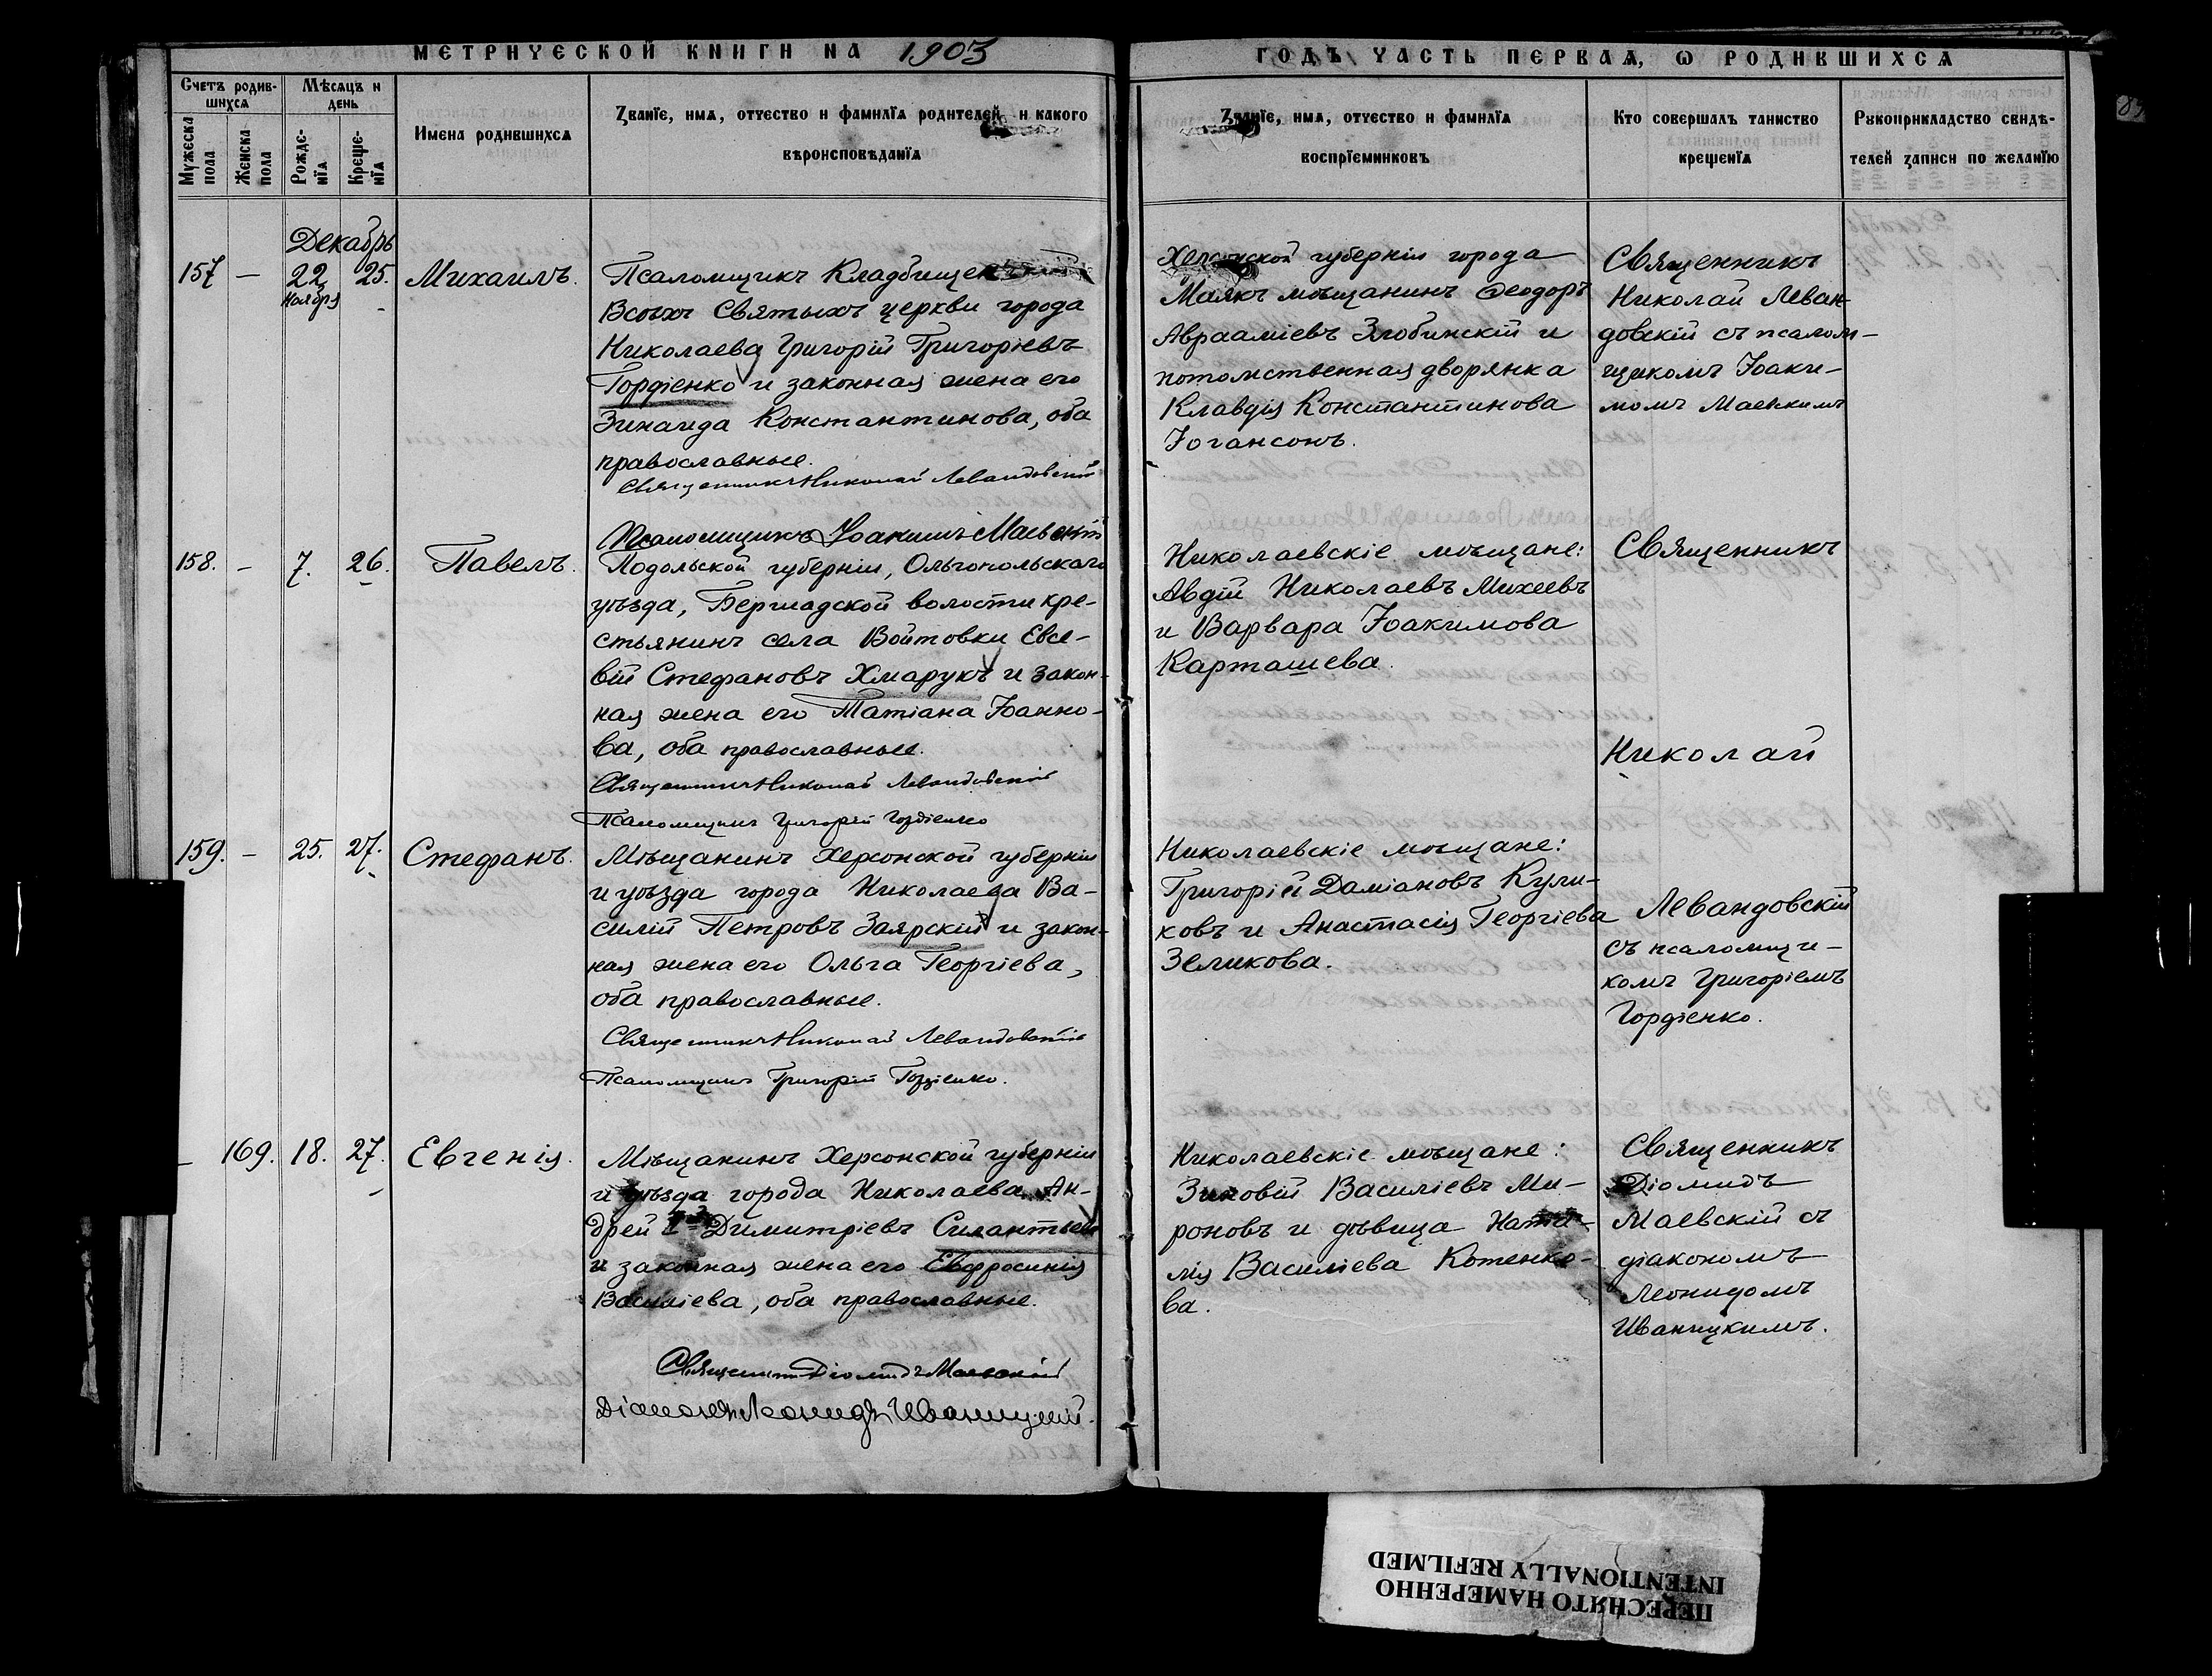 МЕТРИЧЕСКОЙ КНИГИ НА 1903
ГОДЪ ЧАСТЬ ПЕРВАЯ, Ѡ РОДИВШИХСЯ
Счетъ родив-
шихся
Мѣсяцъ и
день
Мужеска
пола
Женска
пола
Рожде-
нїя
Креще-
нїя
Имена родившихся
Званїе, имя, отчество и фамилїя родителей и какого
вѣроисповѣданїя
Званїе, имя, отчество и фамилїя
воспрїемниковъ
Кто совершалъ таинство
крещенїя
Рукоприкладство свидѣ-
телей записи по желанїю
Декабрь
157 – 22 25. Михаилъ.
Ноября
Псаломщикъ
Всѣхъ Святыхъ церкви города
Николаева Григорій Григоріевъ
Гордіенко и законная жена его
Зинаида Константинова, оба
православные.
Священникъ Николай Левандовскій
Псаломщикъ Іоакимъ Маевскій
Херсонской губерніи города
Маякъ мѣщанинъ Ѳеодоръ
Авраамiевъ Злобинскій и
потомственная дворянка
Клавдія Константинова
Іогансонъ.
Священникъ
Николай Леван-
довскій съ псалом-
щикомъ Іоаки-
момъ Маевкимъ
158. – 7. 26. Павелъ.
Подольской губерніи, Ольгопольскаго
уѣзда, Бершадской волости кре-
стьянинъ села Войтовки Евсе-
вій Стефановъ Хмарукъ и закон-
ная жена его Татіана Іоанно-
ва, оба православные.
Священникъ Николай Левандовскій
Псаломщикъ Григорій Гордіенко
Николаевскіе мѣщане:
Авдій Николаевъ Михеевъ
и Варвара Іоакимова
Карташева.
Священникъ
Николай
159. – 25. 27. Стефанъ.
Мѣщанинъ Херсонской губерніи
и уѣзда города Николаева Ва-
силій Петровъ Заярскій и закон-
ная жена его Ольга Георгіева,
оба православные.
Священникъ Николай Левандовскій
Псаломщикъ Григорій Гордіенко.
Николаевскіе мѣщане:
Григорій Даміановъ Кули-
ковъ и Анастасія Георгіева
Зеликова.
Левандовскій
съ псаломщи-
комъ Григоріемъ
Гордіенко.
– 169. 18. 27. Евгенія.
Мѣщанинъ Херсонской губерніи
и уѣзда города Николаева Ан-
дрей Димитріевъ Силантьевъ
и законная жена его Евфросинія
Василіева, оба православные.
Священникъ Діомидъ Маевскій
Діаконъ Леонидъ Иваницкій.
Николаевскіе мѣщане:
Зиновій Василіевъ Ми-
роновъ и дѣвица Ната-
лія Василіева Котенко-
ва.
Священникъ
Діомидъ
Маевскій съ
діакономъ
Леонидомъ
Иваницкимъ.
ПЕРЕСНЯТО НАМЕРЕННО
INTENTIONALLY REFILMED